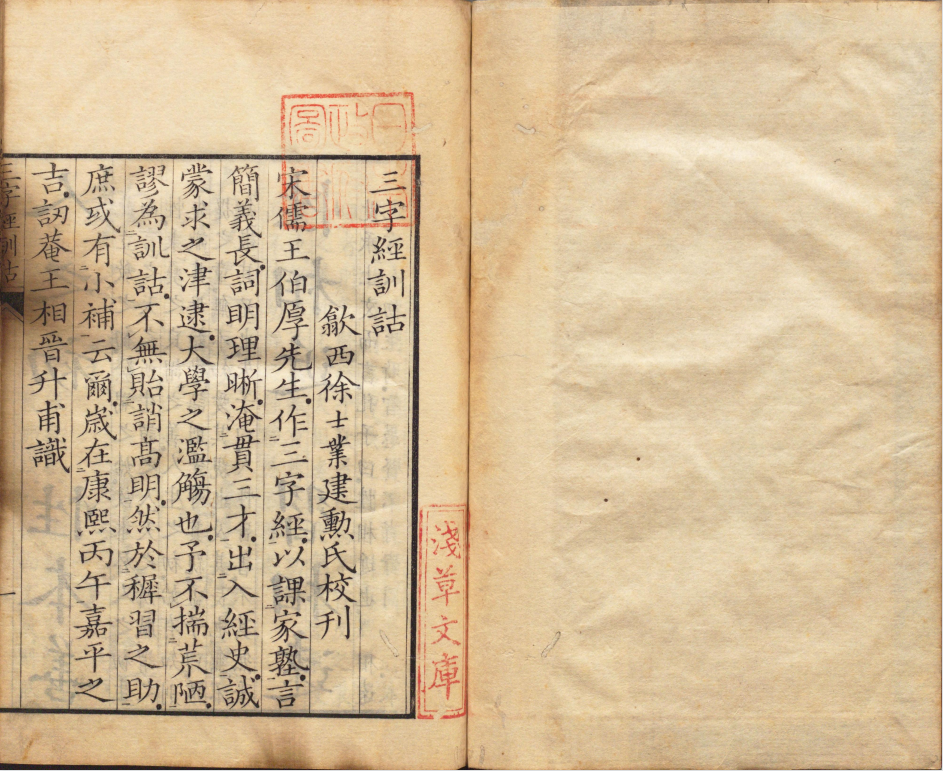 三字經訓詁
歙西徐士業建勳氏校刊
宋儒王伯厚先生作三字經以課家塾言
簡義長詞明理晰淹貫三才出入經史誠
蒙求之津逮大學之濫觴也予不揣荒陋
謬為訓詁不無貽誚高明然於穉習之助
庶或有小補云爾歲在康熙丙午嘉平之
吉訒菴王相晉升甫識
三字經訓詁
一
淺草文庫